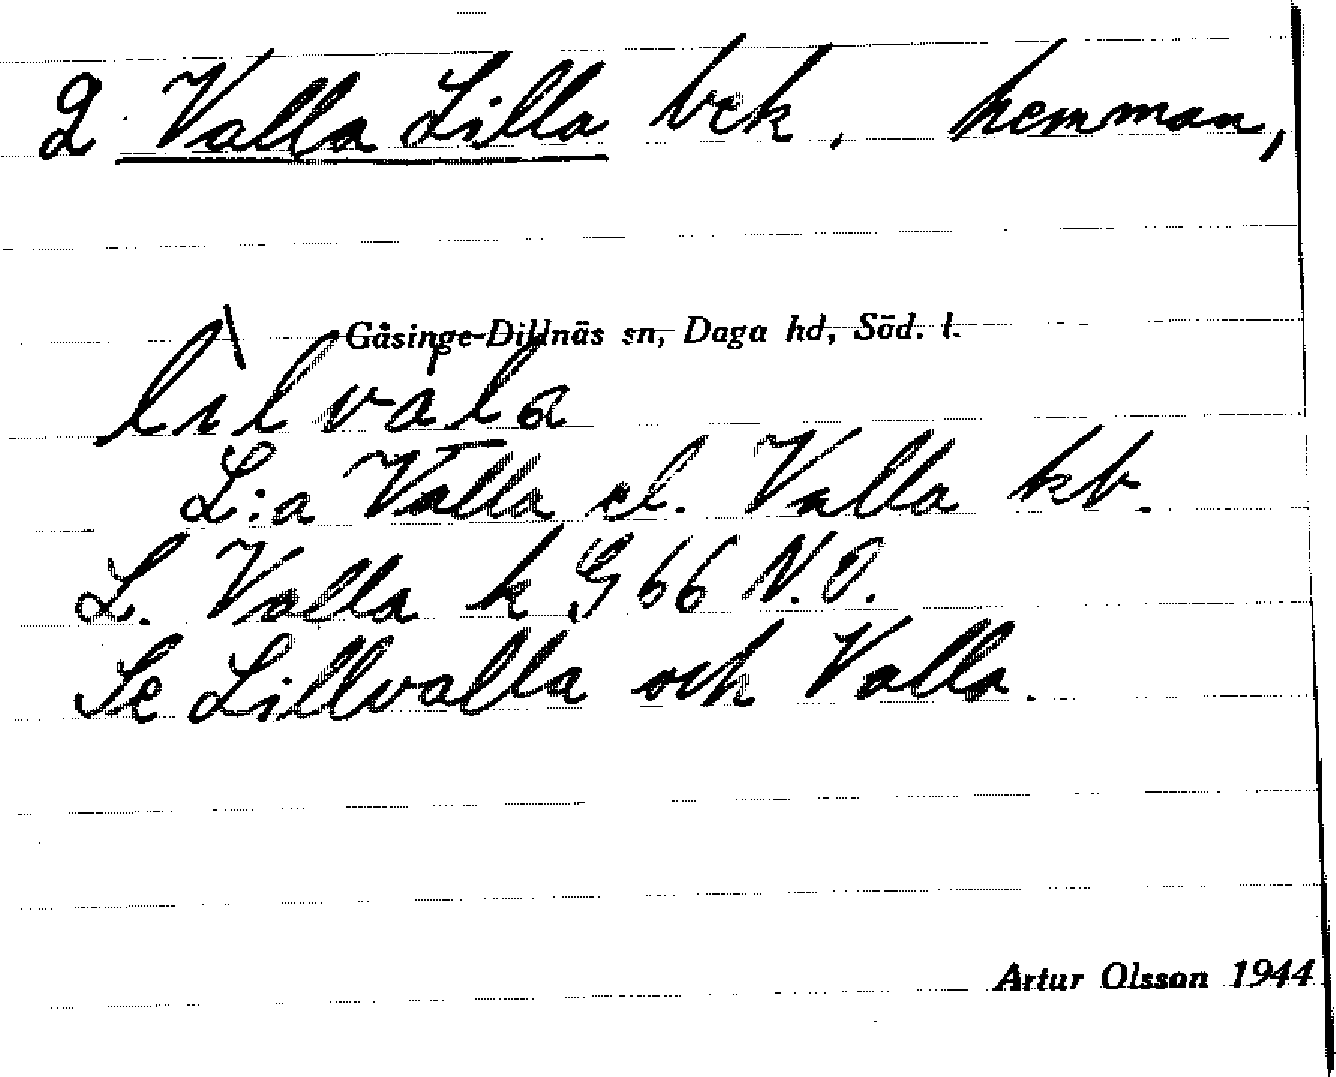 2 Valla Lilla bek. hemman,
Gåsinge-Dillnäs sn, Daga hd, Söd. l.
lìlvála
L:a Valla el. Valla kb.
L. Valla k G 66 N.O.
Se Lillvalla och Valla.
Artur Olsson 1944